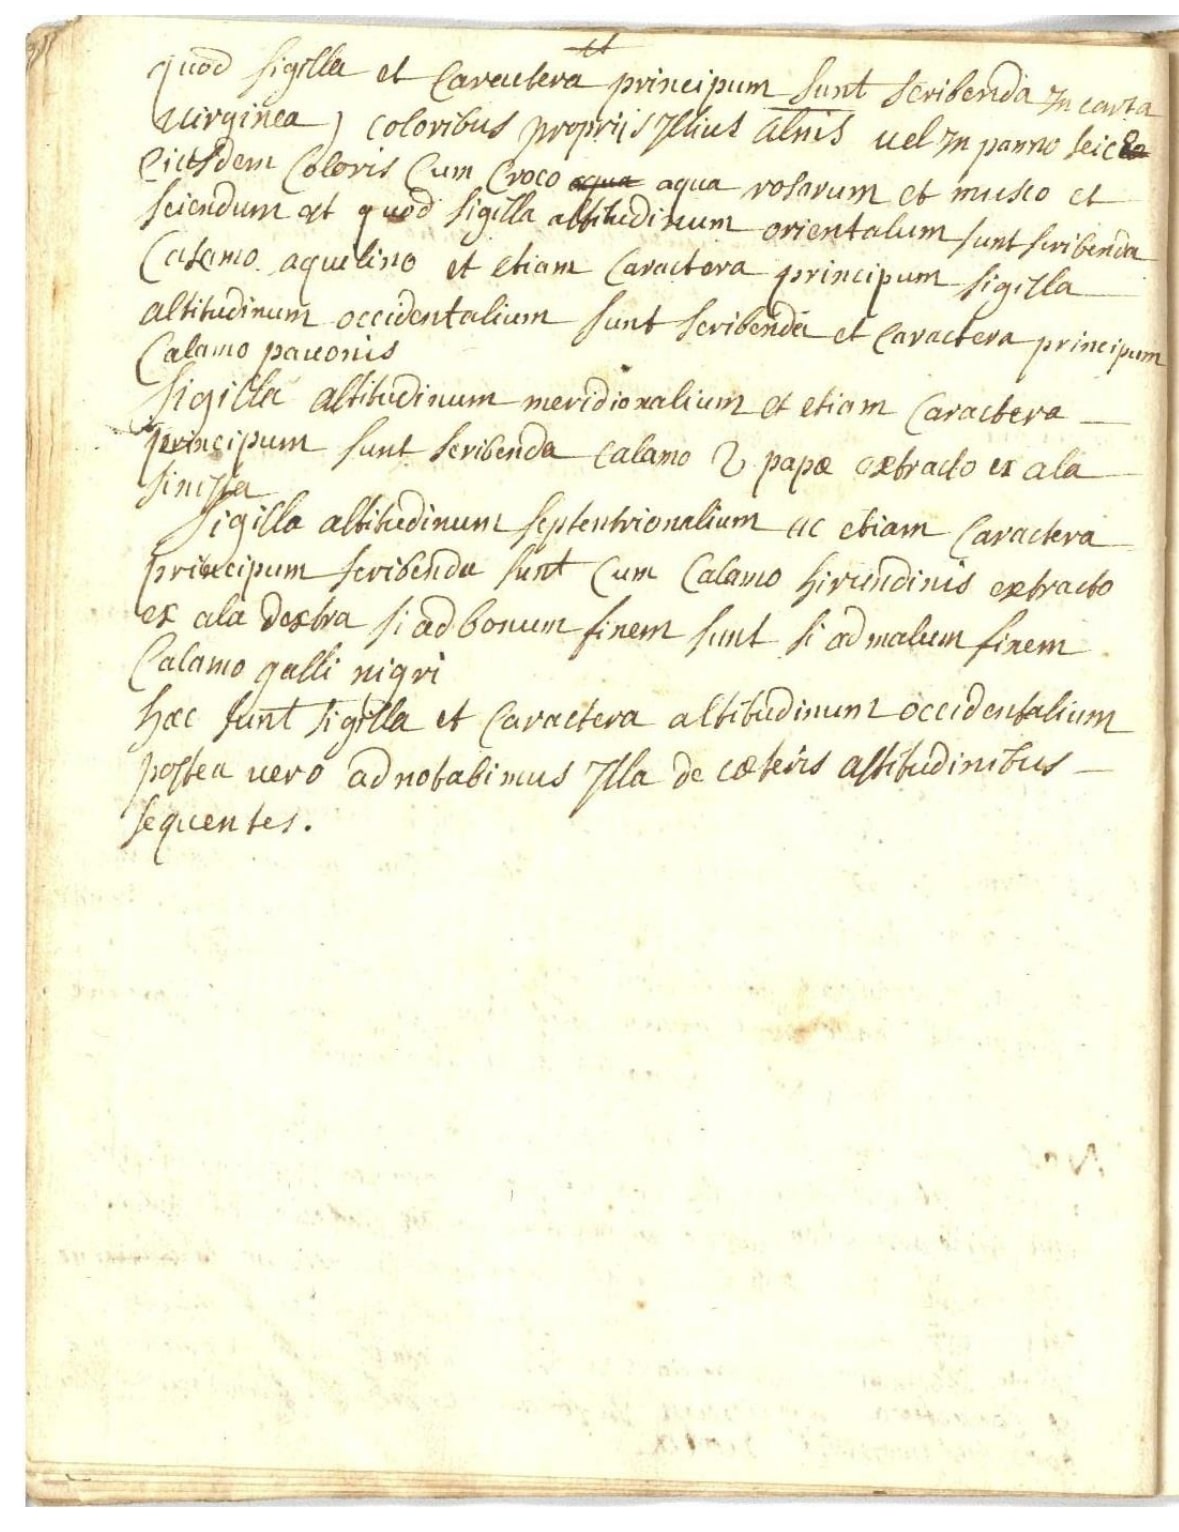 et
quod sigilla et Caractera principum sunt scribenda In carta
uirginea) coloribus proprijs Illius altnis uel In panno seic
Eiusdem Coloris Cum Croco aqua aqua rosarum et musco et
sciendum est quod sigilla altitudinum orientalum sunt scribenda
Calamo aquilino et etiam Caractera principum sigilla
altitudinum occidentalium sunt scribenda et Caractera principum
Calamo pauonis
sigilla altitudinum meridionalium et etiam Caractera
principum sunt scribenda Calamo papæ extracto ex ala
sinistra
sigilla altitudinum septentrionalium ac etiam Caractera
principum scribenda sunt Cum Calamo hirundinis extracto
ex ala dextra si ad bonum finem sunt si ad malum finem
Calamo galli nigri
hæc sunt sigilla et Caractera altitudinum occidentalium
postea uero adnotabimus Illa de cæteris altitudinibus
sequentes.